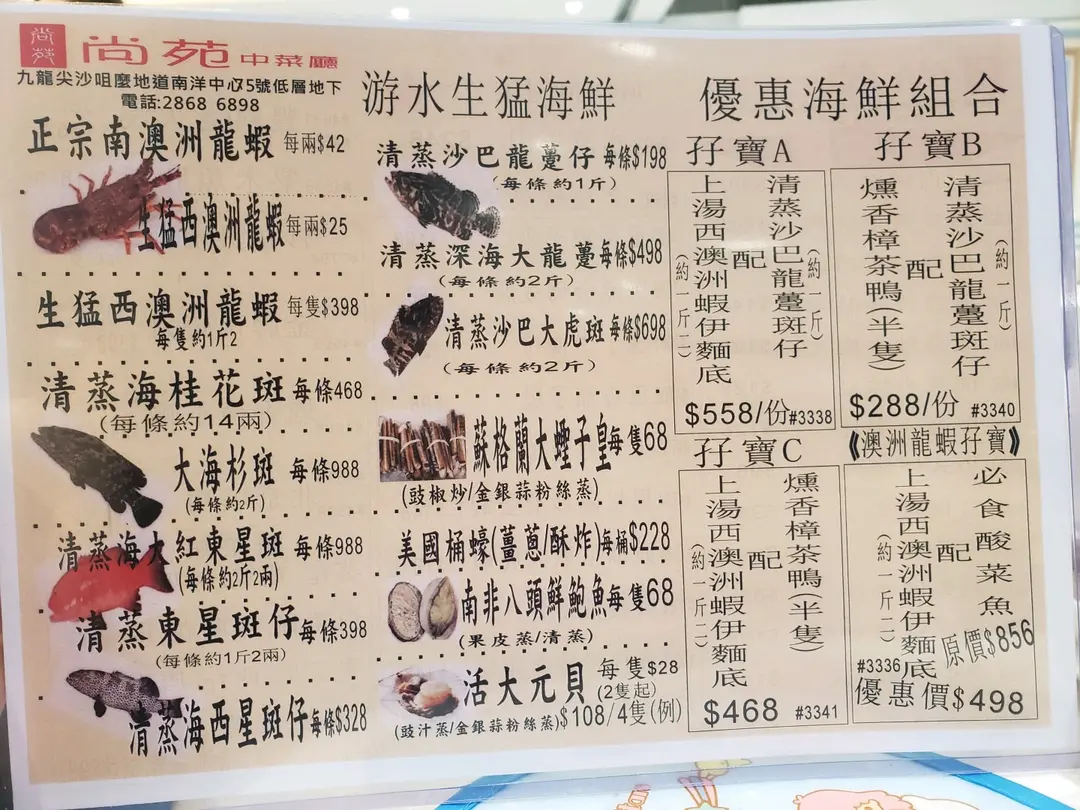 尚苑
尚苑中菜廳
九龍尖沙咀麼地道南洋中心75號低層地下
電話:2868 6898
正宗南澳洲龍蝦 每兩$42
生猛西澳洲龍蝦 每兩$25
生猛西澳洲龍蝦 每隻$398
每隻約1斤2
清蒸海桂花斑 每條468
(每條約14兩)
大海杉斑 每條988
(每條約2斤)
清蒸海大紅東星斑 每條988
(每條約2斤2兩)
清蒸東星斑仔 每條398
(每條約1斤2兩)
清蒸海西星斑仔 每條$328
游水生猛海鮮
清蒸沙巴龍躉仔 每條$198
(每條約1斤)
清蒸深海大龍躉 每條$498
(每條約2斤)
清蒸沙巴大虎斑 每條$698
(每條約2斤)
蘇格蘭大蟶子皇 每隻68
(豉椒炒/金銀蒜粉絲蒸)
美國桶蠔(薑蔥/酥炸)每桶$228
南非八頭鮮鮑魚 每隻68
(果皮蒸/清蒸)
活大元貝 每隻$28
(2隻起)
(豉汁蒸/金銀蒜粉絲蒸)$108/4隻(例)
優惠海鮮組合
孖寶A
清蒸沙巴龍躉斑仔(約一斤)
配
上湯西澳洲蝦伊麵底(約一斤二)
$558/份 #3338
孖寶B
清蒸沙巴龍躉斑仔(約一斤)
配
燻香樟茶鴨(半隻)
$288/份 #3340
孖寶C
燻香樟茶鴨(半隻)
配
上湯西澳洲蝦伊麵底(約一斤二)
$468 #3341
《澳洲龍蝦孖寶》
必食酸菜魚
配
上湯西澳洲蝦伊麵底(約一斤二)
原價$856
#3336
優惠價$498